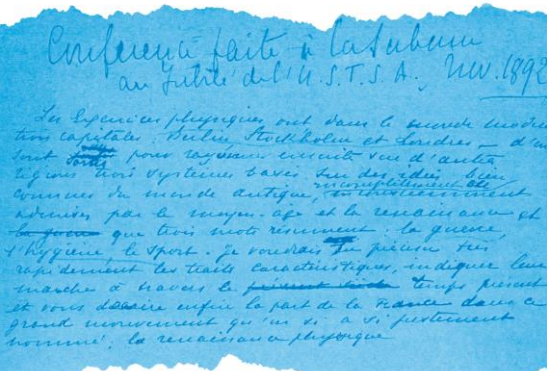 Conférence faite à la Sorbonne
au Jubilé de l'U.S.F.S.A. Nov. 1892
Les Exercices physiques ont dans le monde moderne
trois capitales : Berlin, Stockholm et Londres – d'où
sont pour rayonner ensuite sur d'autres
régions trois systèmes basés sur des idées bien
connues du monde antique, incomplètement
admises par le moyen-age et la renaissance et
la guerre que trois mots résument : la guerre,
l'hygiène, le sport. Je voudrais préciser très
rapidement les traits caractéristiques, indiquer leur
marche à travers le temps présent
et vous décrire enfin la part de la France dans ce
grand mouvement qu'on a si justement
nommé : la renaissance physique